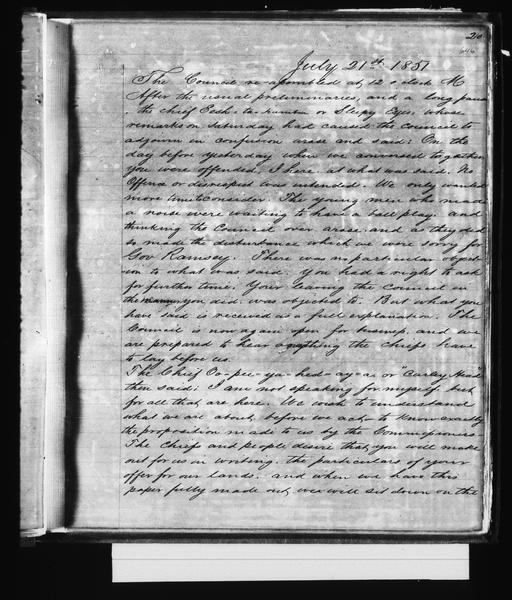 20
July 21st 1851
The Council re-assembled at 12 o'clock M
After the usual preliminaries, and a long pause
the chief or Sleepy Eyes, whose
remarks on Saturday had caused the Council to
adjourn in confusion arose and said: On the
day before yesterday when we conversed together
you were offended, I hear at what was said. No
Offence or disrespect was intended. We only wanted
more time to consider. The young men who made
a noise were waiting to have a ball play and
thinking the Council over arose, and as they did
so made the disturbance which we were sorry for
Gov Ramsey. There was no particular object-
ion to what was said. You had a right to ask
for further time. Your leaving the Council in
the manner you did was objected to. But what you
have said is received as a full explanation. The
Council is now again open for business, and we
are prepared to hear anything the chiefs have
to lay before us.
The Chief or "Curley Head"
then said: I am not speaking for myself, but
for all that are here. We wish to understand
what we are about, before we act — to know exactly
the proposition made to us by the Commissioners
The Chiefs and people desire that you will make
out for us in writing, the particulars of your
offer for our lands, and when we have this
paper fully made out, we will sit down on the